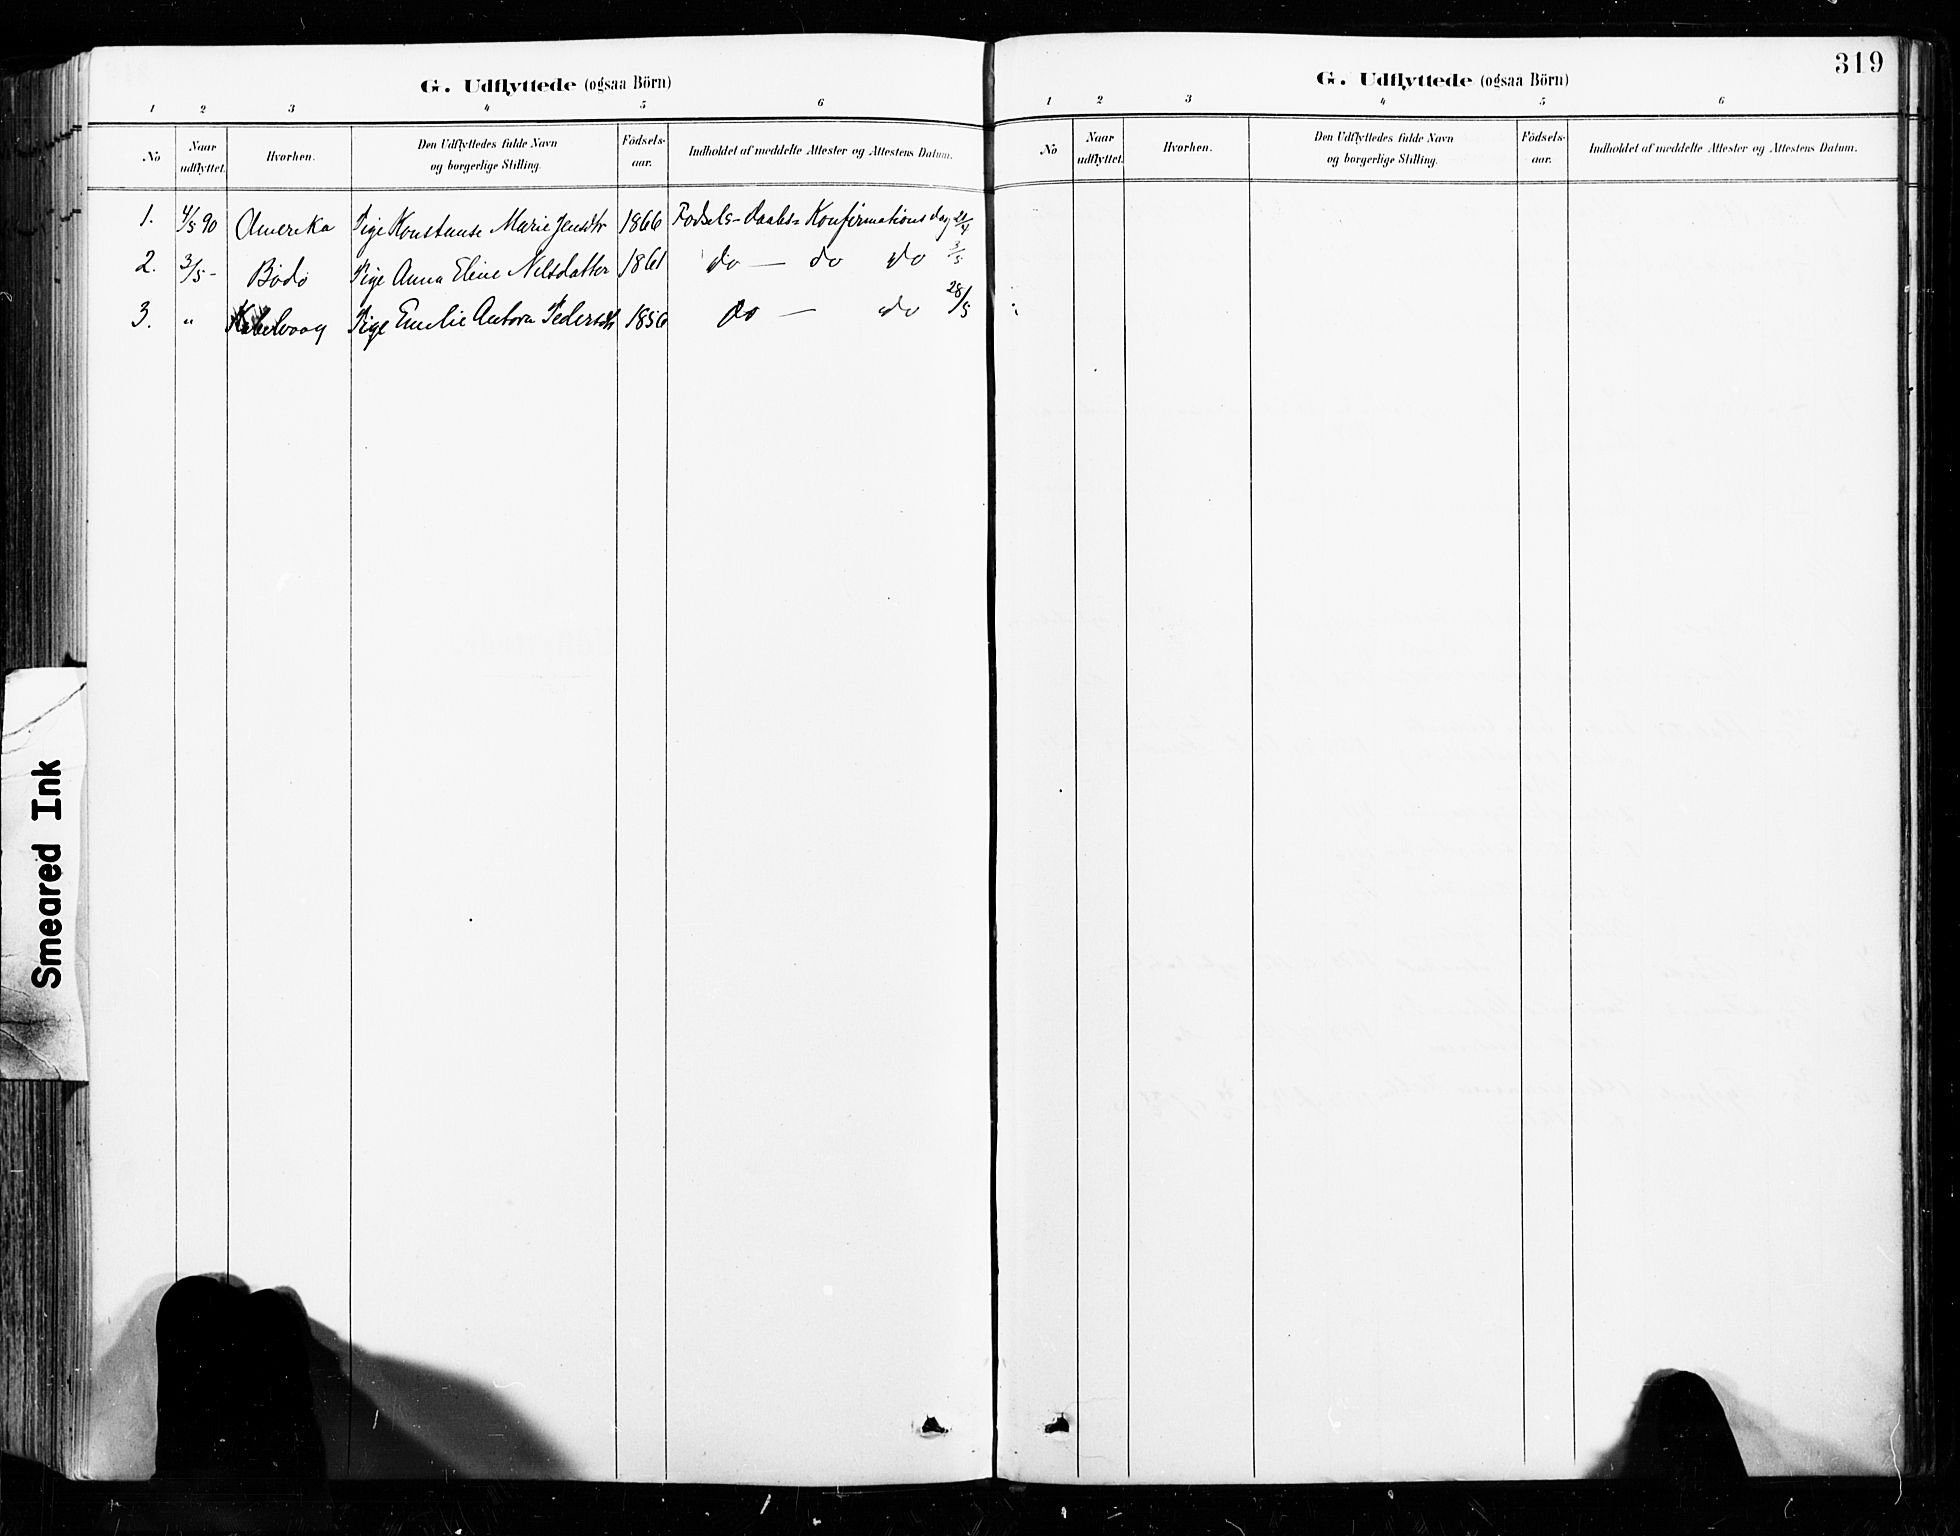 G. Udflyttede (ogsaa Börn)
1 2 3 4 5 6
No Naar udflyttet. Hvorhen. Den Udflyttedes fulde Navn og borgerlige Stilling. Födsels-aar. Indholdet af meddelte Attester og Attestens Datum.
1. 4/5 90 Amerika Pige Konstanse Marie Jensdtr 1866 Fødsels- Daabs- Konfirmationsdag 21/4
2. 3/5 - Bodø Pige Anna Eline Nilsdatter 1861 do — do do 3/5
3. " Kabelvaag Pige Emelie Antora Pedersdtr 1856 do — do 28/5
319
G. Udflyttede (ogsaa Börn)
1 2 3 4 5 6
No Naar udflyttet. Hvorhen. Den Udflyttedes fulde Navn og borgerlige Stilling. Födsels-aar. Indholdet af meddelte Attester og Attestens Datum.
Smeared Ink